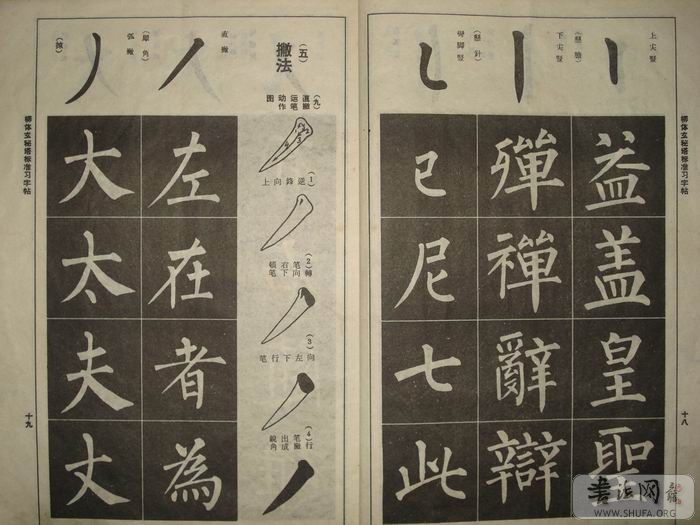 上尖豎
下尖豎
(懸針)
益盖皇聖
殫禪辭辯
已尼七此
柳体玄秘塔标准习字帖
十八
(五)
撇法
(九)
运笔动作图
(1)逆鋒向上
(2)轉笔向右下頓笔
(3)向左下行笔
(4)行笔撇出成銳角
直撇
(犀角)
弧撇
(掠)
左在者為
大太夫丈
柳体玄秘塔标准习字帖
十九
書法网
WWW.SHUFA.ORG